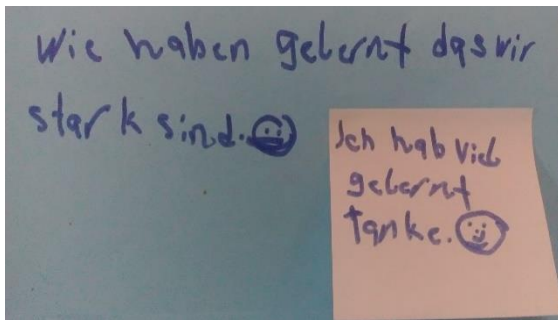 Wie haben gelernt das wir
stark sind.
Ich hab viel
gelernt
tanke.